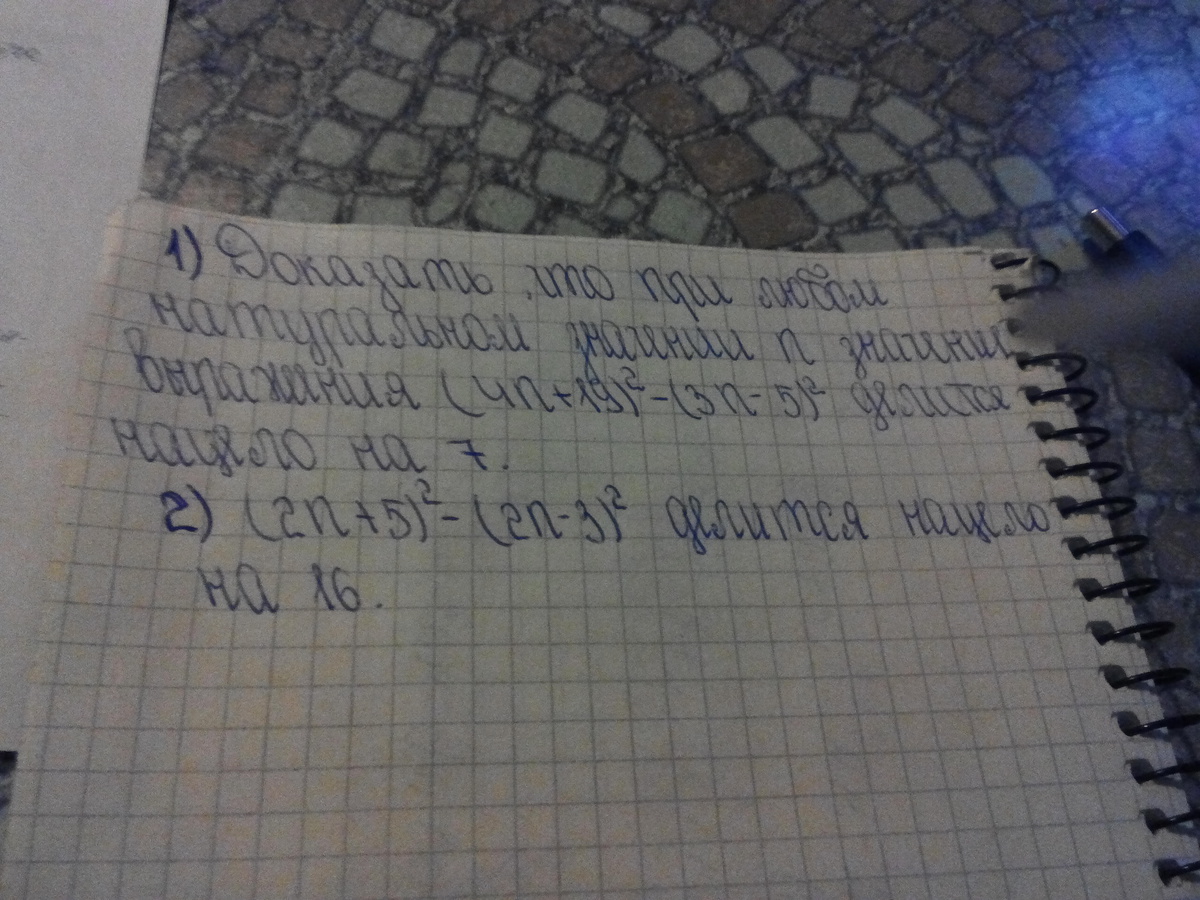 1) Доказать, что при любом
натуральном значении n значение
выражения (4n+19)²-(3n-5)² делится
нацело на 7.
2) (2n+5)²-(2n-3)² делится нацело
на 16.